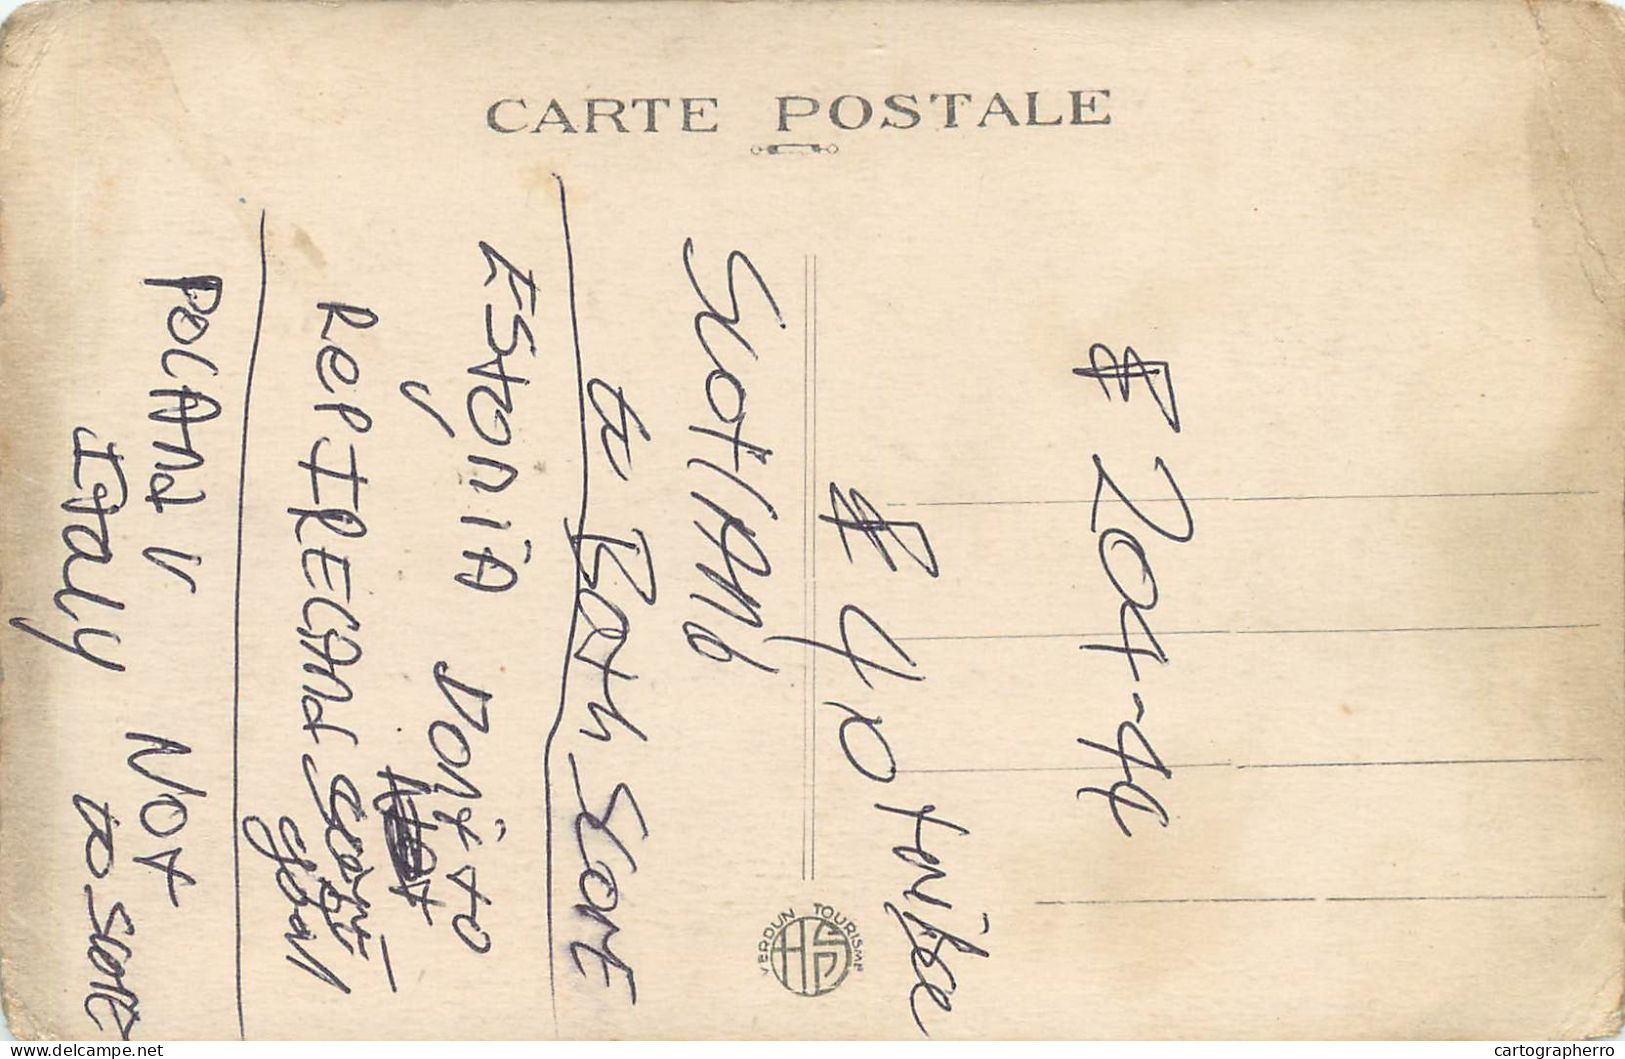 CARTE POSTALE
£ 204-44
£ 40 to
Scotland
to Both Score
EStoniA Don't to
V
Rep IRELAnd Score
goal
POLAnd V Not
Italy to Score
VERDUN TOURISME
HS
cartographerro